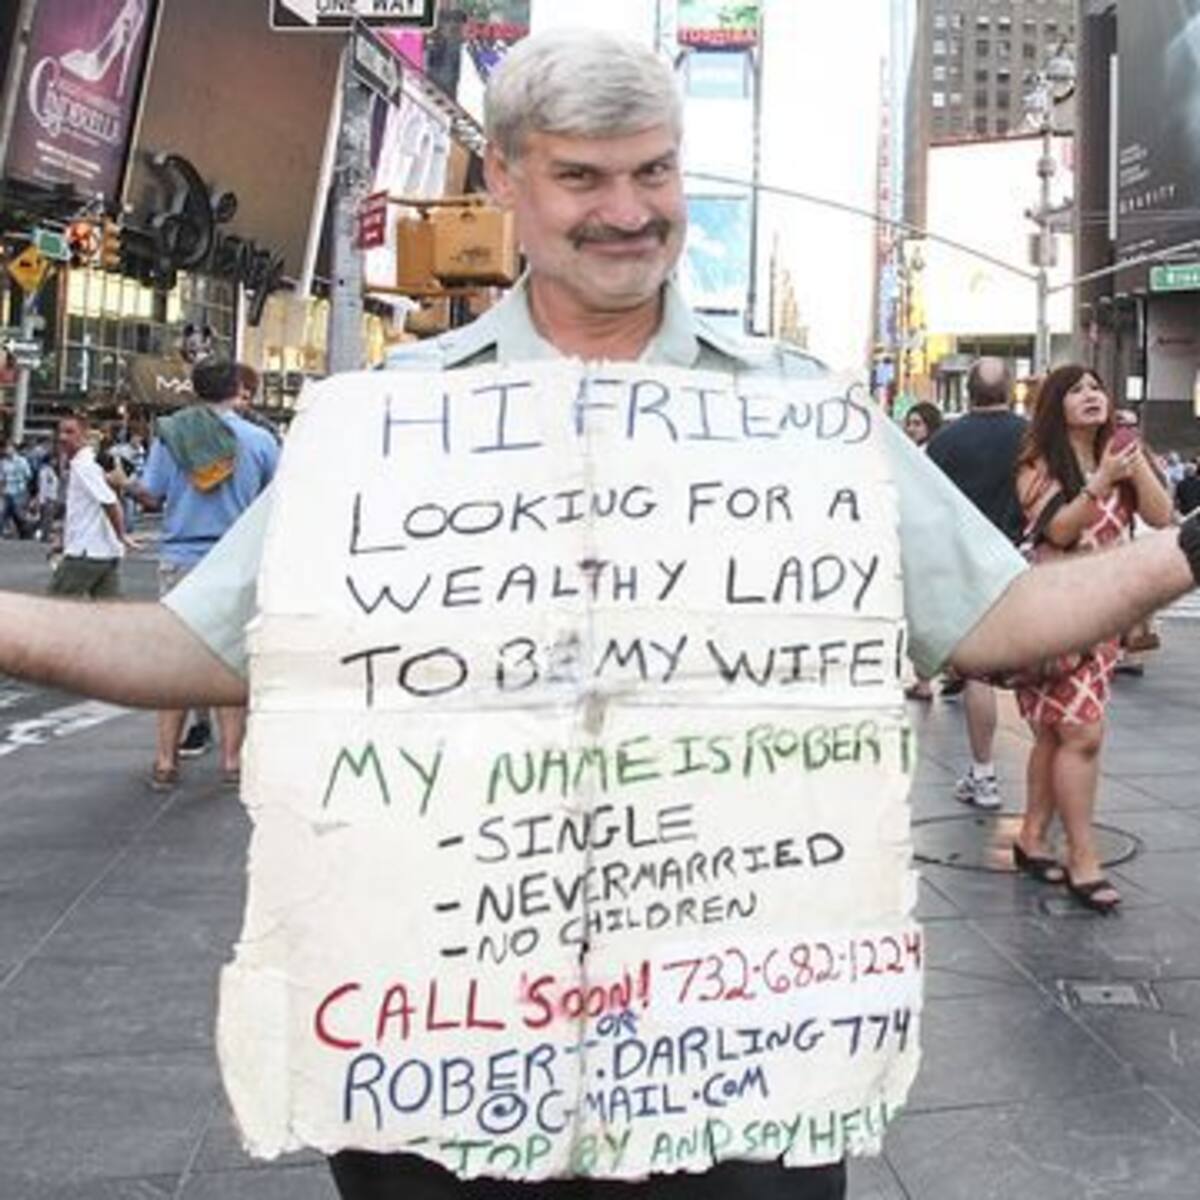 ONE WAY
CINDERELLA
TOSHIBA
Disney
GRAVITY
HI FRIENDS
LOOKING FOR A
WEALTHY LADY
TO BE MY WIFE!
MY NAME IS ROBERT
- SINGLE
- NEVER MARRIED
- NO CHILDREN
CALL SOON! 732-682-1224
OR
ROBERT.DARLING774
@GMAIL.COM
STOP BY AND SAY HELLO